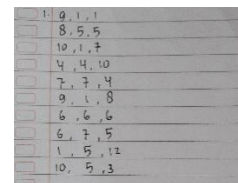 1. 9, 1, 1
8, 5, 5
10, 1, 7
4, 4, 10
7, 7, 4
9, 1, 8
6, 6, 6
6, 7, 5
1, 5, 12
10, 5, 3